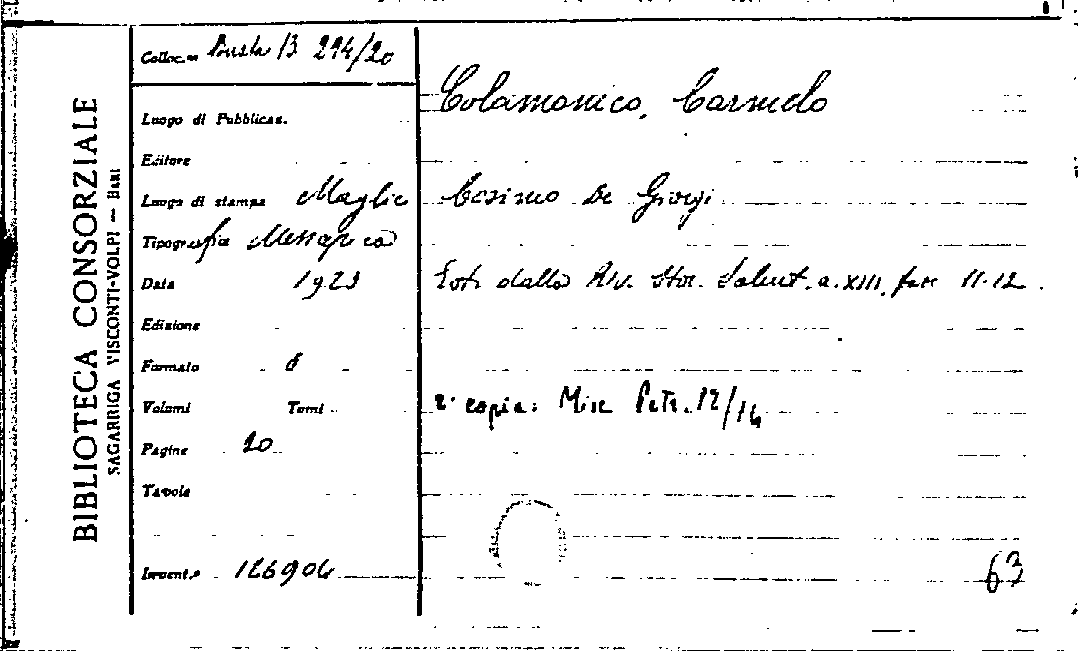 BIBLIOTECA CONSORZIALE
SAGARRIGA VISCONTI-VOLPI — BARI
Colloc.ne Busta B 294/20
Luogo di Pubblicaz.
Editore
Luogo di stampa Maglie
Tipografia Messapica
Data 1923
Edizione
Formato 8
Volumi Tomi
Pagine 20
Tavole
Invent.o 126904
Colamonico, Carmelo
Cosimo De Giorgi
Estr. dalla Riv. Stor. Salent. a. XIII, fasc 11-12.
2ª copia: Misc Petr. 12/14
63